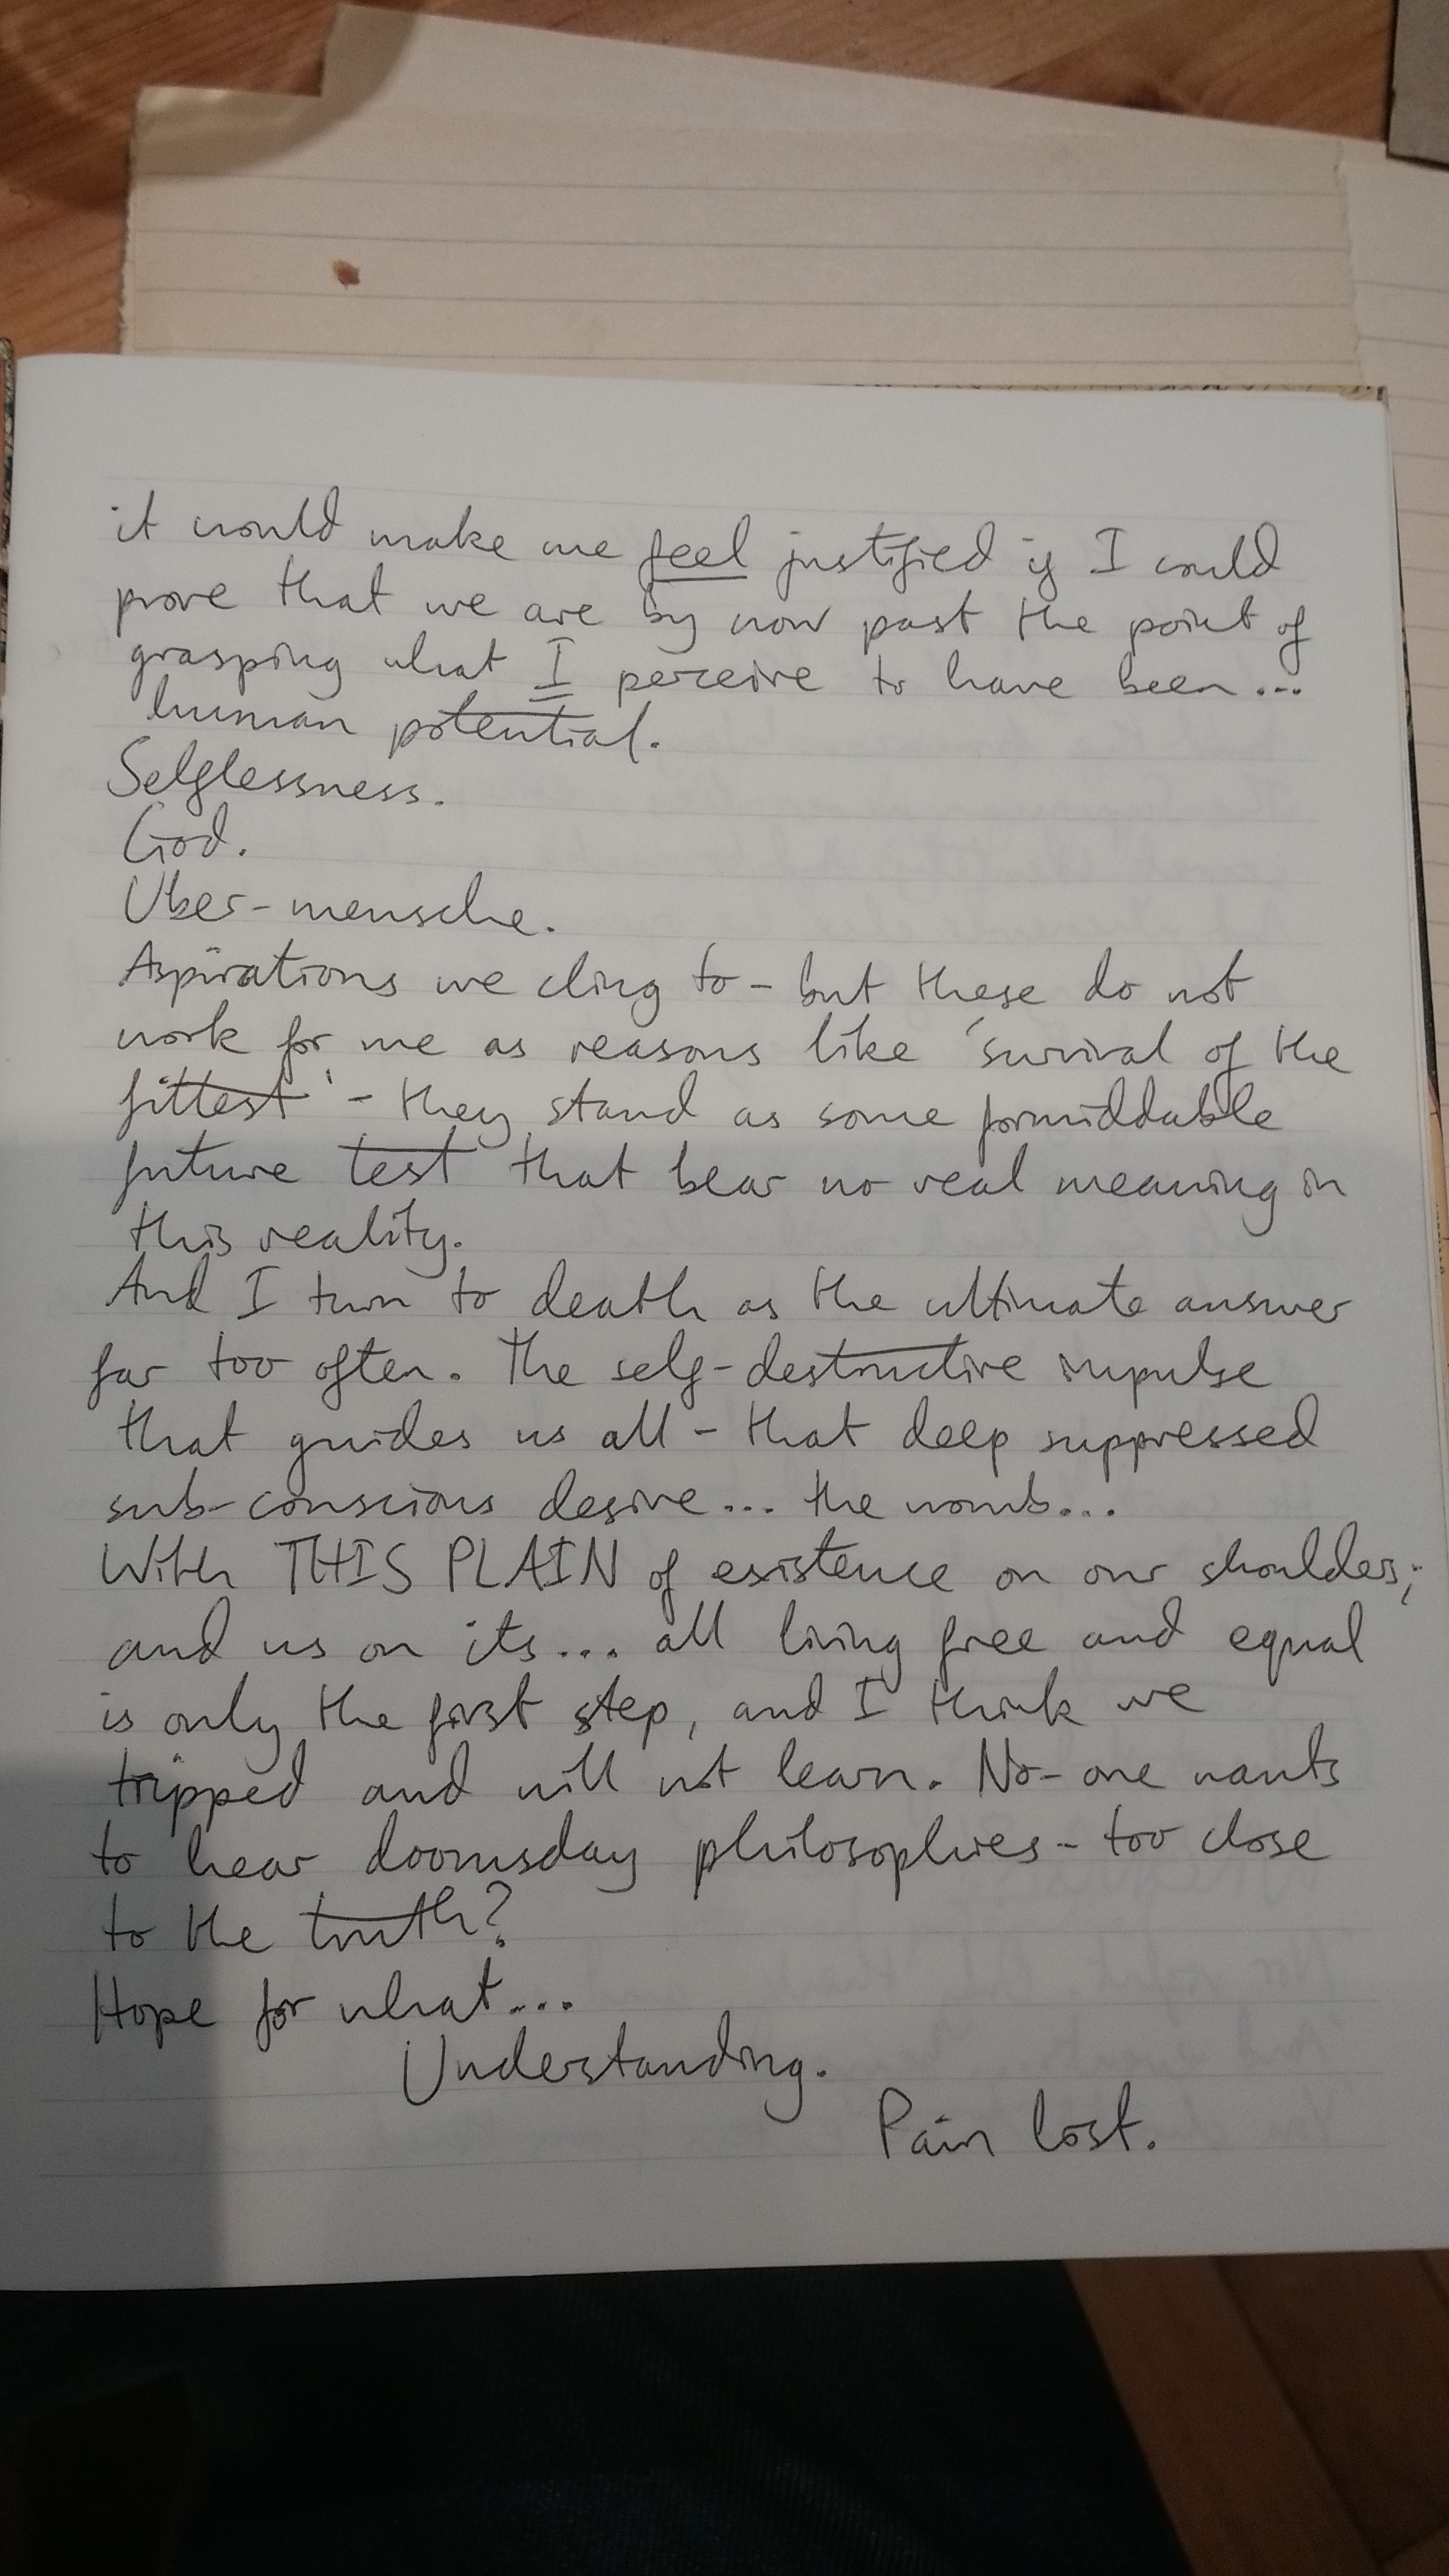 it would make me feel justified if I could
prove that we are by now past the point of
grasping what I perceive to have been...
human potential.
Selflessness.
God.
Uber-mensche.
Aspirations we cling to - but these do not
work for me as reasons like 'survival of the
fittest' - they stand as some formiddable
future test that bear no real meaning in
this reality.
And I turn to death as the ultimate answer
far too often. The self-destructive impulse
that guides us all - that deep suppressed
sub-conscious desire... the womb...
With THIS PLAIN of existence on our shoulders;
and us on its... all living free and equal
is only the first step, and I think we
tripped and will not learn. No-one wants
to hear doomsday philosophies - too close
to the truth?
Hope for what...
Understanding.
Pain lost.